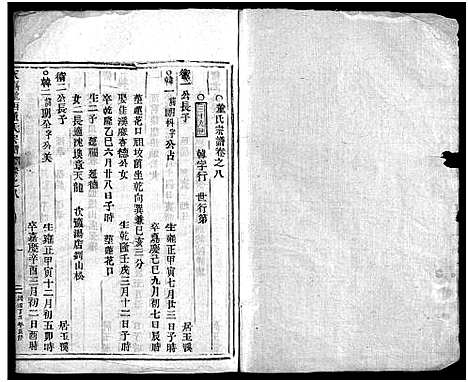 董氏宗譜卷之八
二十九世 韓字行 世行第
儐二公長子 居玉溪
韓一 諱朝科字公占 生雍正甲寅七月廿三日子時
卒嘉慶己巳九月初七日辰時
葬蘆花口祖坟前坐乾向巽兼巳亥三分
娶住溪嚴客德女 生乾隆壬戌三月十二日子時
卒乾隆乙巳六月廿八日子時 葬蘆花口
生二子 蓬福 蓬德
女二長適沈埂章天龍 次適湯店劉山松
儐一公長子 居玉溪
韓二 諱朝公字公美 生雍正甲寅十二月初五卯時
卒嘉慶辛酉三月初二日酉時